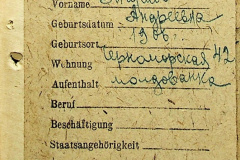 Vorname
Андреевна
Geburtsdatum 1906
Geburtsort
Wohnung Черноморская 42
Aufenthalt молдованка
Beruf
Beschäftigung
Staatsangehörigkeit